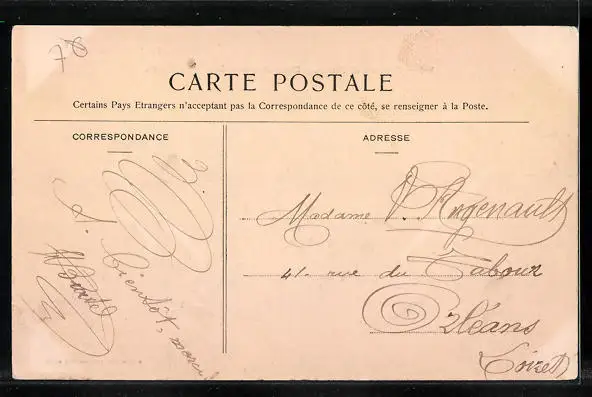 78
CARTE POSTALE
Certains Pays Etrangers n'acceptant pas la Correspondance de ce côté, se renseigner à la Poste.
CORRESPONDANCE
à bientôt,
ADRESSE
Madame V.
41. rue du Tabour
Orléans
Loiret